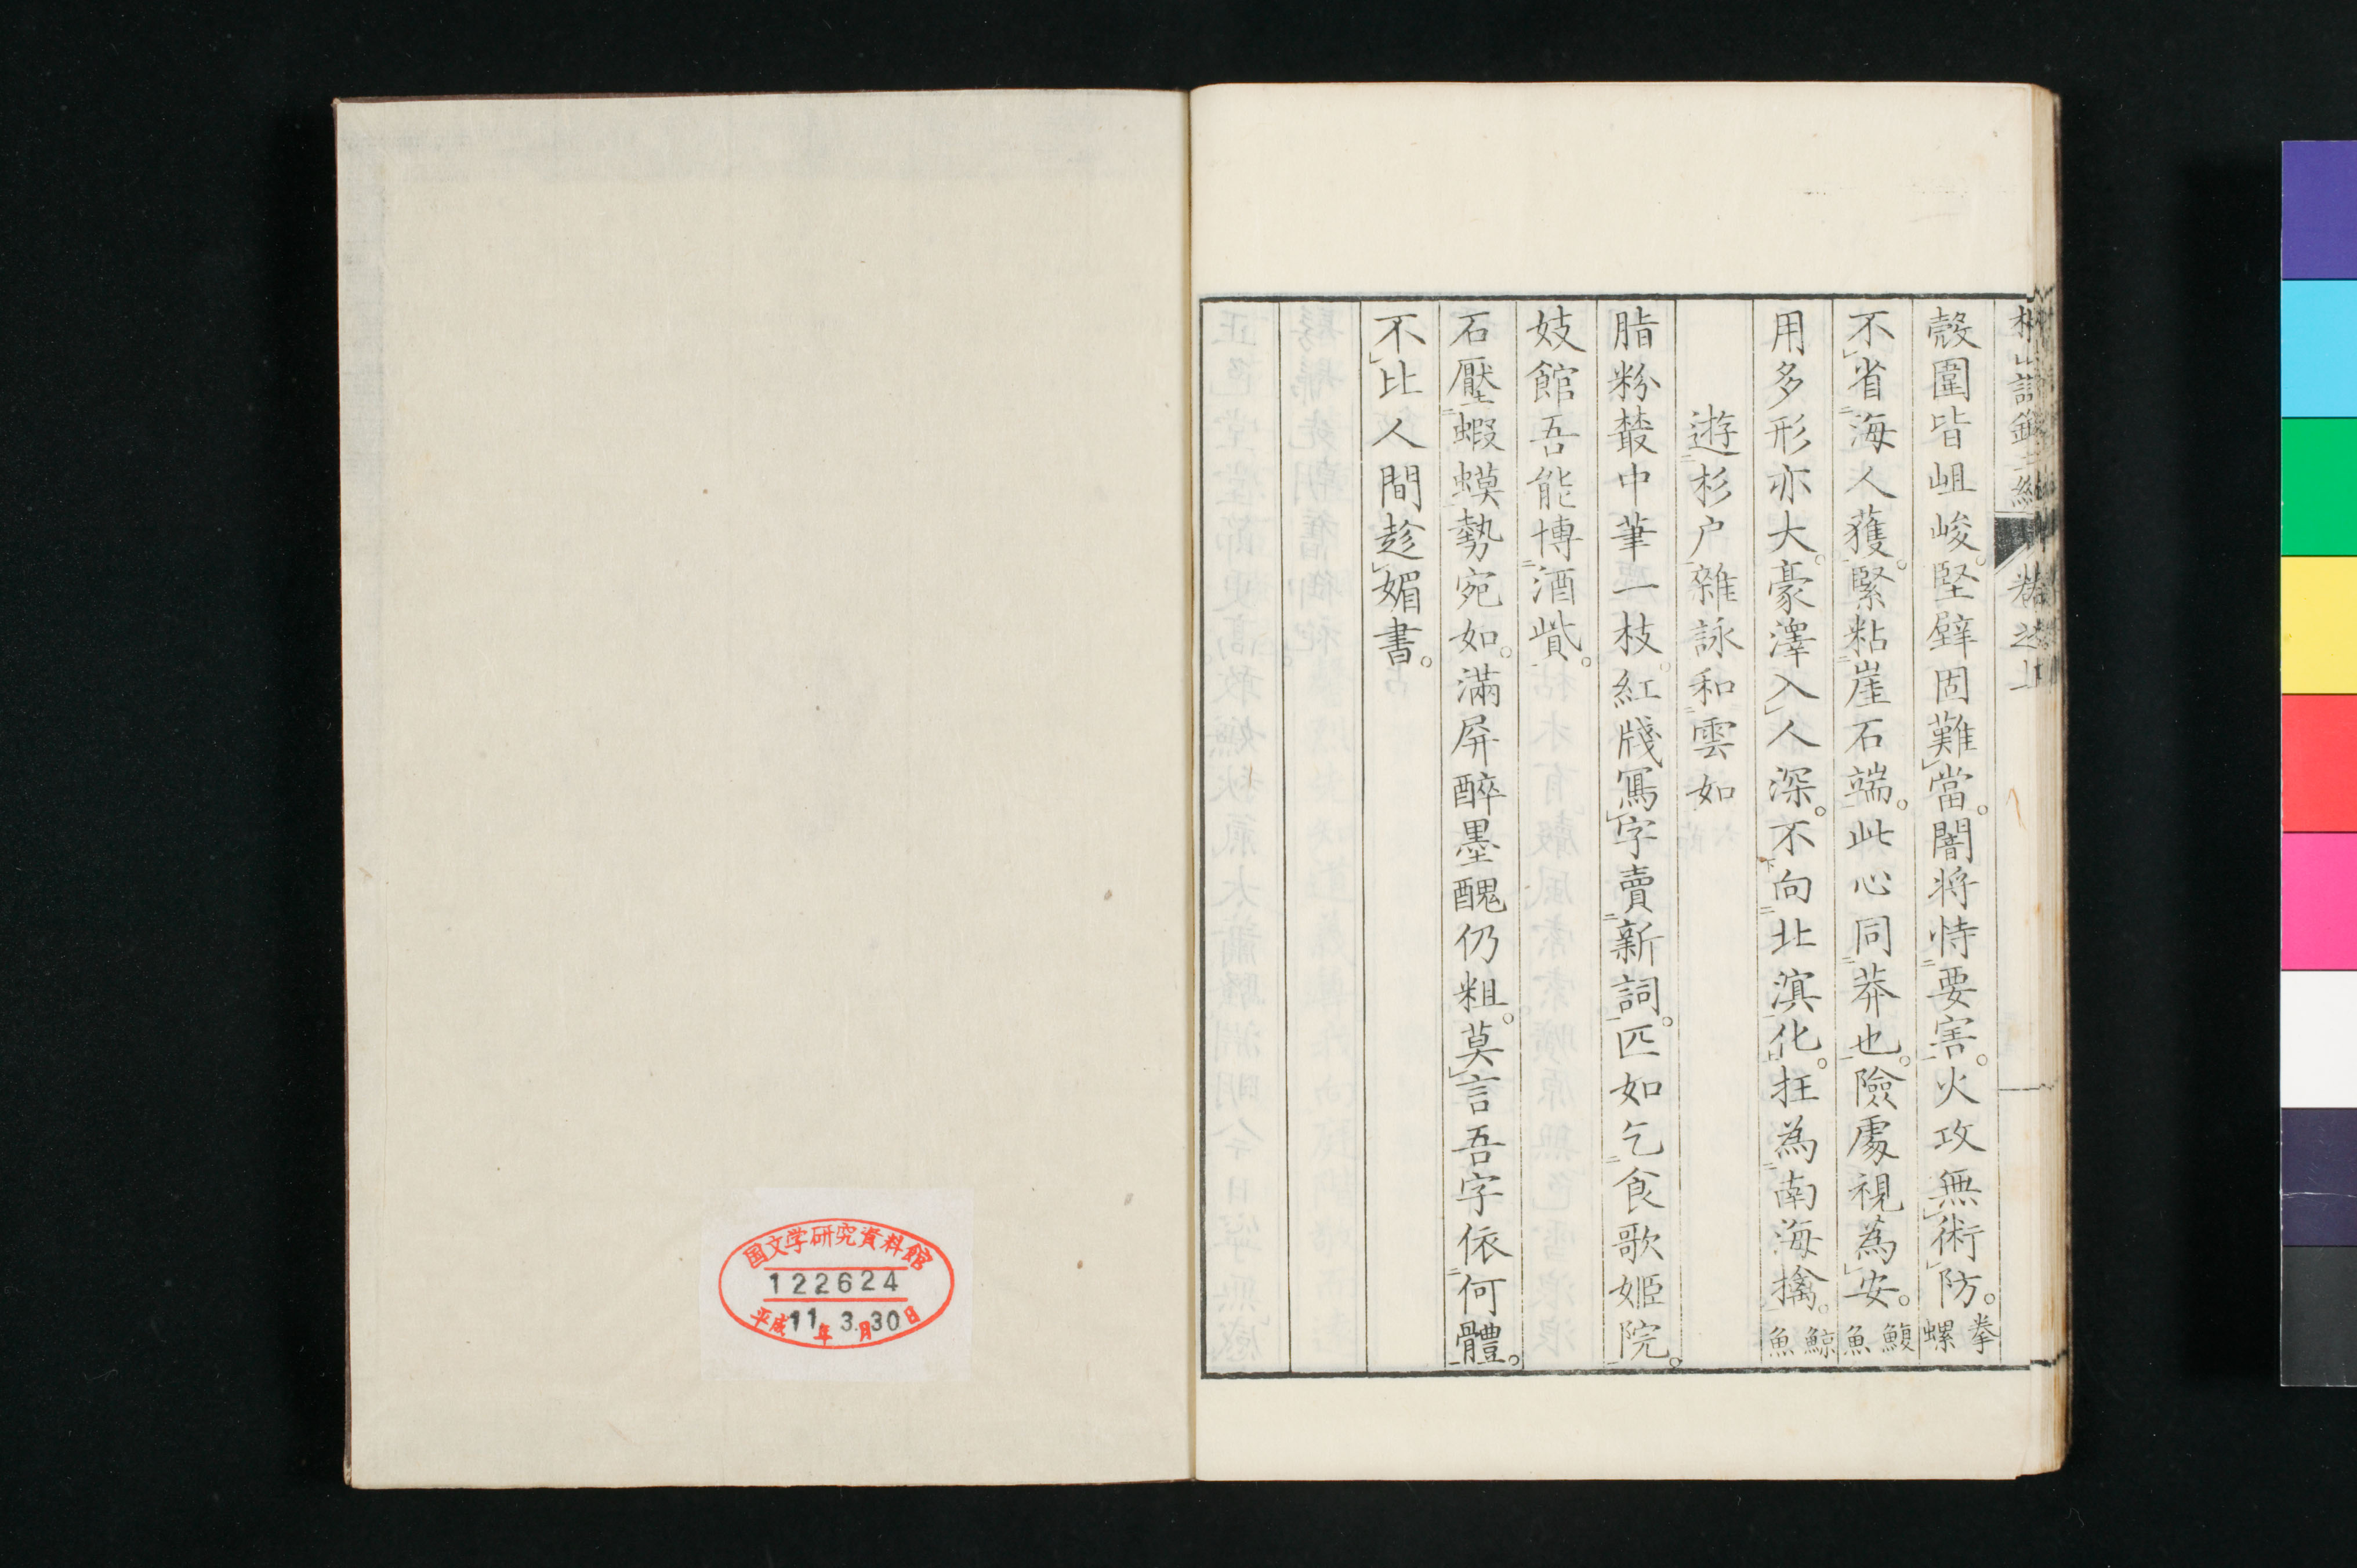 殼圍皆岨峻。堅壁固難當。闇将恃要害。火攻無術防。拳螺
不省海人獲。緊粘崖石端。此心同莽也。險處視為安。鰒魚
用多形亦大。豪澤入人深。不向北溟化。抂為南海擒。鯨魚
遊杉戸雜詠和雲如
脂粉叢中筆一枝。紅牋寫字賣新詞。匹如乞食歌姬院。
妓館吾能博酒貲。
石壓蝦蟆勢宛如。滿屏醉墨醜仍粗。莫言吾字依何體。
不比人間趁媚書。
卷之上
国文学研究資料館
122624
平成11年3月30日